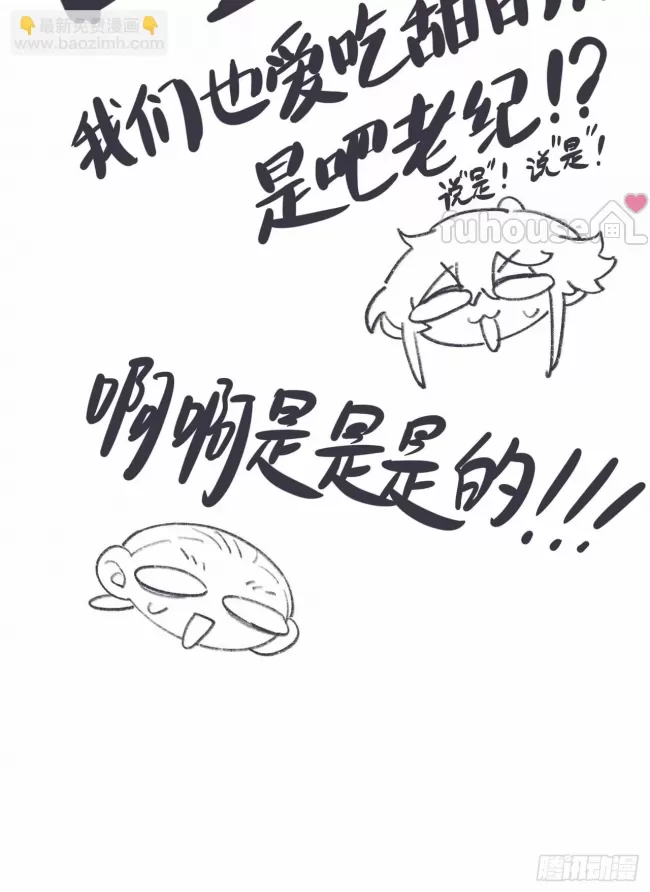 👇最新免费漫画👇
www.baozimh.com
我们也爱吃甜
是吧老纪!?
说"是"! 说"是"!
fuhouse画L
啊啊是是是的!!!
腾讯动漫